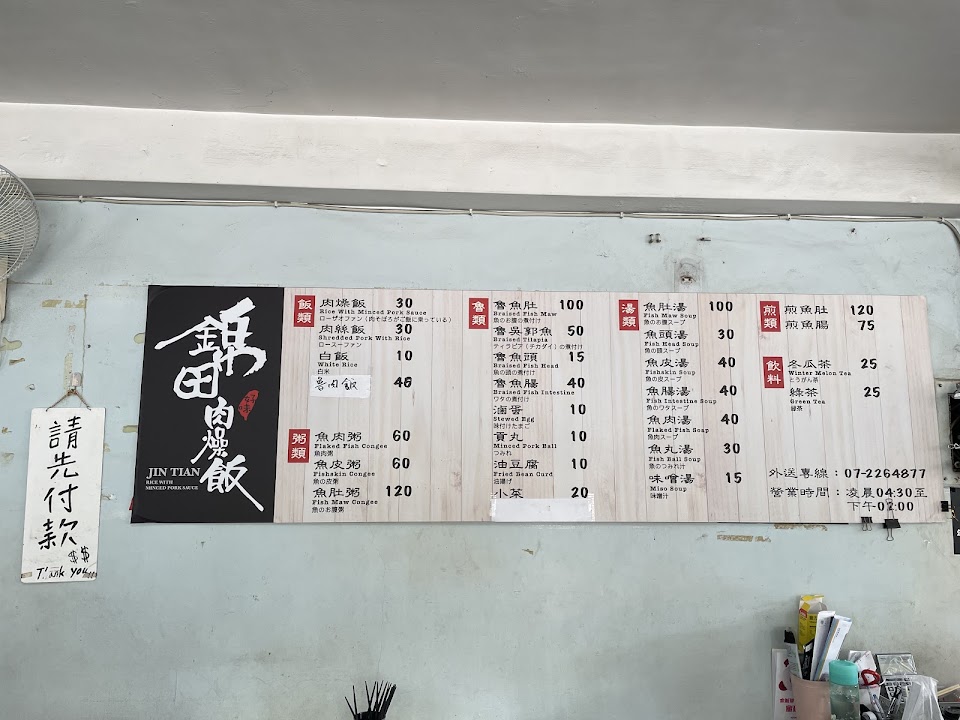 錦田
肉燥飯
JIN TIAN
RICE WITH
MINCED PORK SAUCE
請先付款
$$
飯類
肉燥飯 30
Rice With Minced Pork Sauce
ローザオファン（肉そぼろがご飯に乗っている）
肉絲飯 30
Shredded Pork With Rice
ロースーファン
白飯 10
White Rice
白米
魯肉飯 40
粥類
魚肉粥 60
Flaked Fish Congee
魚肉粥
魚皮粥 60
Fishskin Congee
魚の皮粥
魚肚粥 120
Fish Maw Congee
魚のお腹粥
魯類
魯魚肚 100
Braised Fish Maw
魚のお腹の煮付け
魯吳郭魚 50
Braised Tilapia
ティラピア（チカダイ）の煮付け
魯魚頭 15
Braised Fish Head
魚の頭の煮付け
魯魚腸 40
Braised Fish Intestine
ワタの煮付け
滷蛋 10
Stewed Egg
味付けたまご
貢丸 10
Minced Pork Ball
つみれ
油豆腐 10
Fried Bean Curd
油揚げ
小菜 20
湯類
魚肚湯 100
Fish Maw Soup
魚のお腹スープ
魚頭湯 30
Fish Head Soup
魚の頭スープ
魚皮湯 40
Fishskin Soup
魚の皮スープ
魚腸湯 40
Fish Intestine Soup
魚のワタスープ
魚肉湯 40
Flaked Fish Soup
魚肉スープ
魚丸湯 30
Fish Ball Soup
魚のつみれ汁
味噌湯 15
Miso Soup
味噌汁
煎類
煎魚肚 120
煎魚腸 75
飲料
冬瓜茶 25
Winter Melon Tea
とうがん茶
綠茶 25
Green Tea
緑茶
外送專線：07-2264877
營業時間：凌晨04:30至
下午02:00